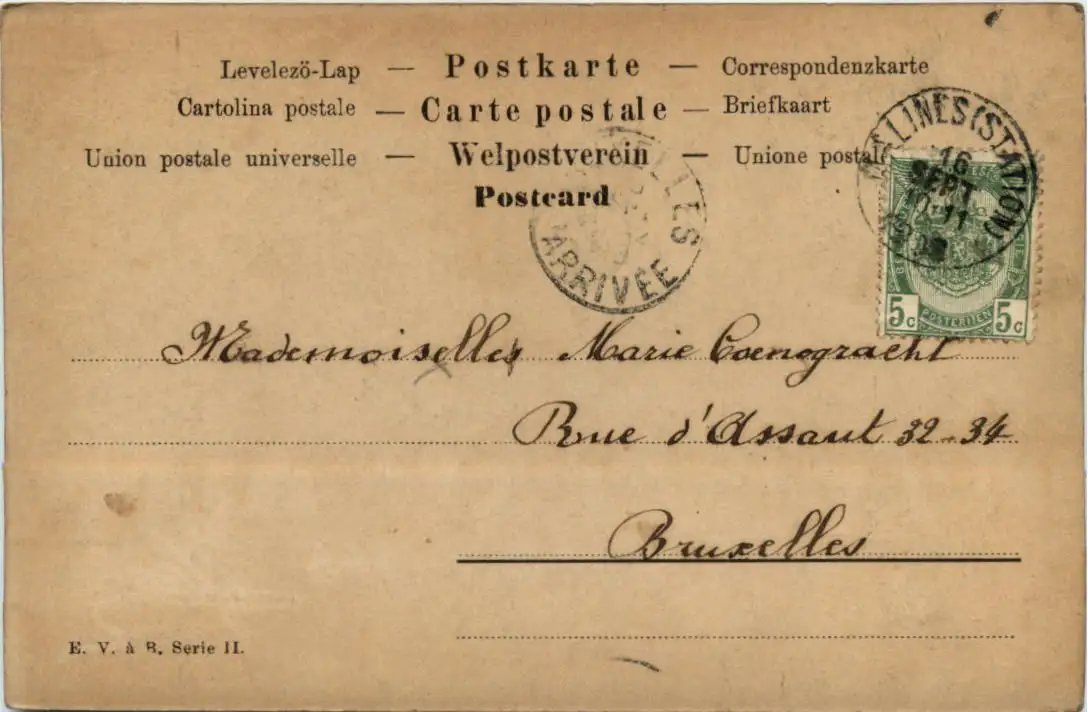 Levelezö-Lap — Postkarte — Correspondenzkarte
Cartolina postale — Carte postale — Briefkaart
Union postale universelle — Welpostverein — Unione postale
Postcard
MALINES (STATION)
16
SEPT
10-11
ARRIVÉE
5c POSTERIJEN 5c
Mademoiselle Marie Coenogracht
Rue d'Assaut 32-34
Bruxelles
E. V. à B. Serie II.